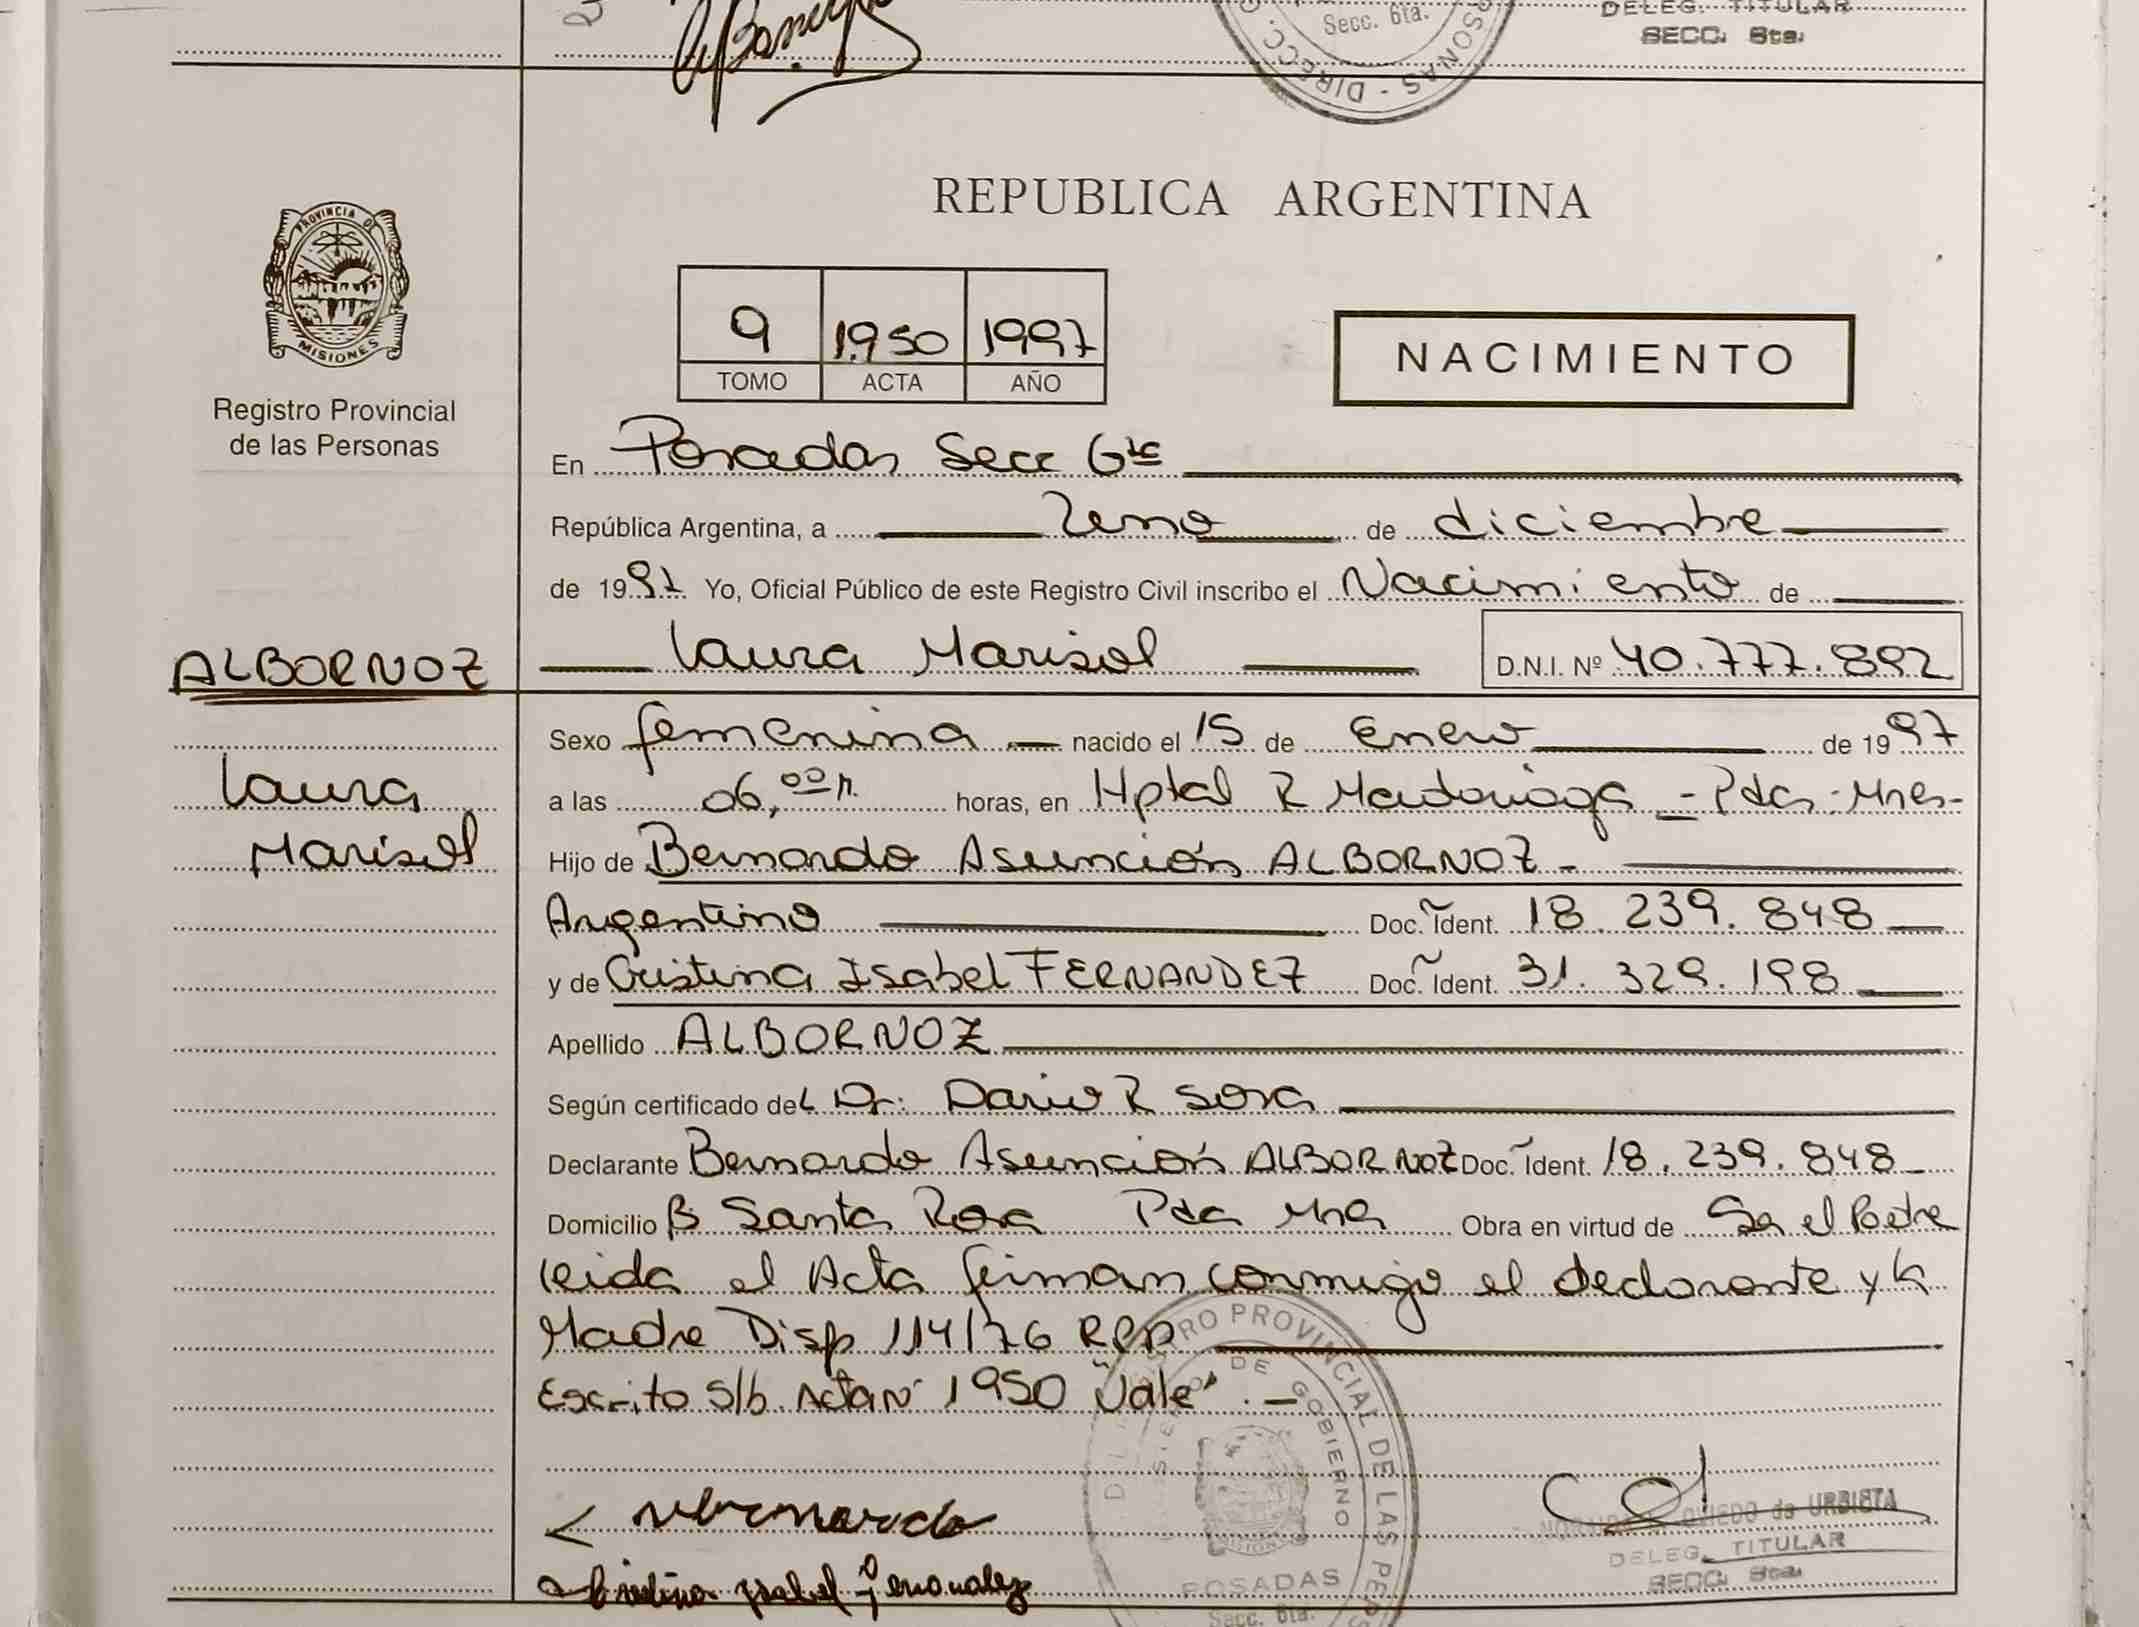 Secc. 6ta.
SONAS - DIRECC.
DELEG. TITULAR
SECC. 6ta.
PROVINCIA DE
MISIONES
Registro Provincial
de las Personas
REPUBLICA ARGENTINA
9 1.950 1997
TOMO ACTA AÑO
NACIMIENTO
En Posadas Secc 6ta
República Argentina, a de diciembre
de 1997 Yo, Oficial Público de este Registro Civil inscribo el Nacimiento de
ALBORNOZ
Laura Marisol D.N.I. Nº 40.777.892
Laura
Marisol
Sexo femenina nacido el 15 de Enero de 1997
a las 06,00 h. horas, en Hptal R Madariaga - Pdas - Mnes-
Hijo de Bernardo Asunción ALBORNOZ -
Argentino Doc. Ident. 18.239.848
y de Cristina Isabel FERNANDEZ Doc. Ident. 31.329.198
Apellido ALBORNOZ
Según certificado del Dr. Dario R Sosa
Declarante Bernardo Asunción ALBORNOZ Doc. Ident. 18.239.848
Domicilio B Santa Rosa Pda Mna Obra en virtud de Ser el Padre
leida el Acta firman conmigo el declarante y la
Madre Disp 114/76 RPP
Escrito s/b. Acta Nº 1950 "Vale". -
REGISTRO PROVINCIAL DE LAS PERSONAS
DE GOBIERNO
MISIONES
POSADAS
Secc. 6ta.
Bernardo
Cristina Isabel Fernandez
OVIEDO de URBIETA
DELEG. TITULAR
SECC. 6ta.